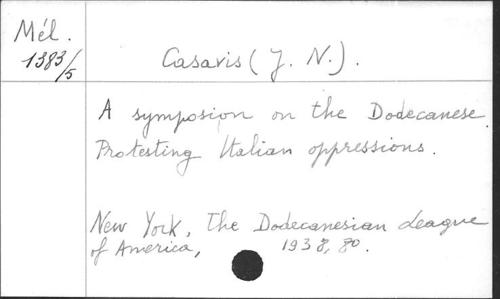 Mél.
1383/5
Casavis (J. N.).
A symposion on the Dodecanese
Protesting Italian oppressions.
New York, The Dodecanesian League
of America, 1938, 8o.